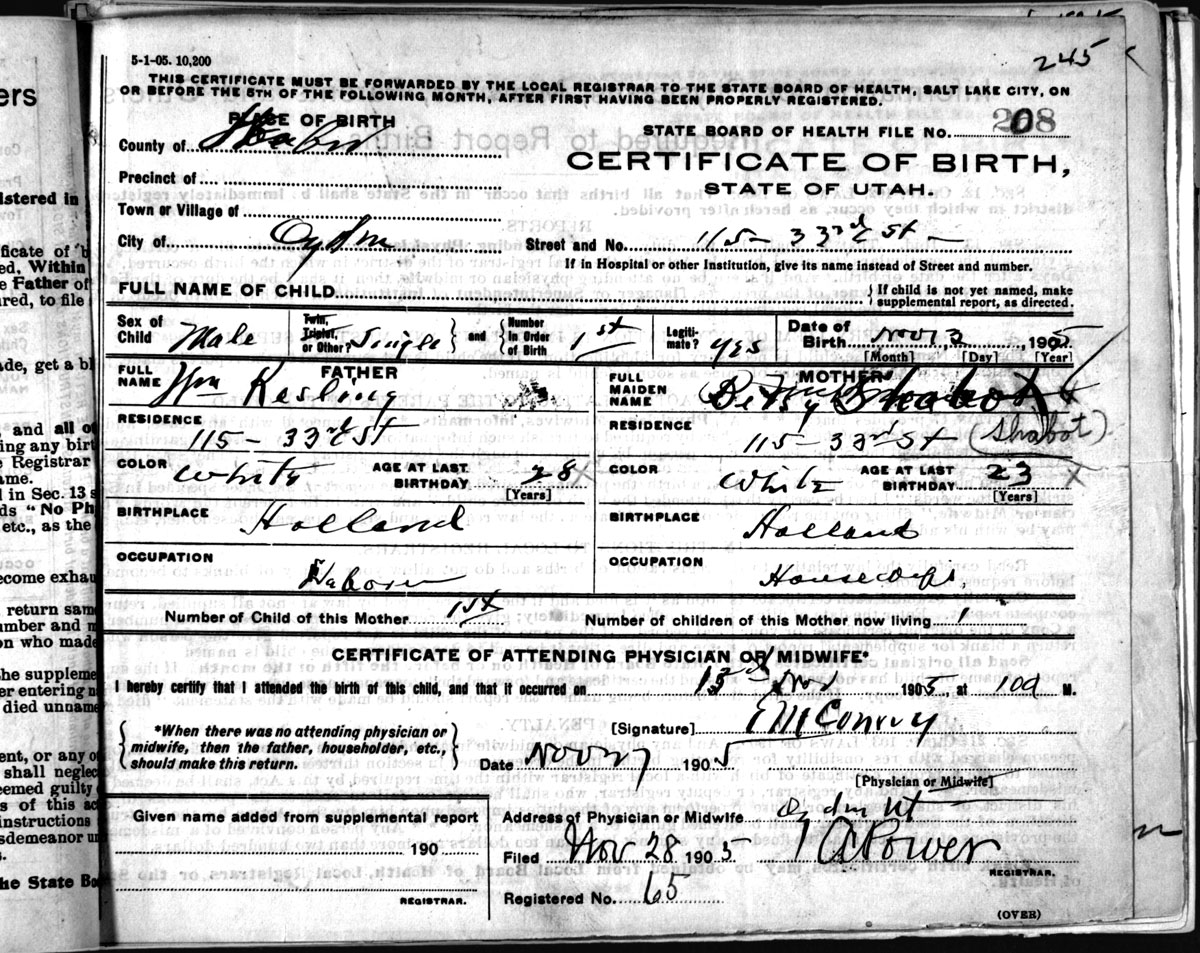 5-1-05. 10,200
245
THIS CERTIFICATE MUST BE FORWARDED BY THE LOCAL REGISTRAR TO THE STATE BOARD OF HEALTH, SALT LAKE CITY, ON
OR BEFORE THE 5TH OF THE FOLLOWING MONTH, AFTER FIRST HAVING BEEN PROPERLY REGISTERED.
PLACE OF BIRTH
STATE BOARD OF HEALTH FILE NO. 208
County of
CERTIFICATE OF BIRTH,
Precinct of
STATE OF UTAH.
Town or Village of
City of Ogden
Street and No. 115 - 33rd St -
If in Hospital or other Institution, give its name instead of Street and number.
FULL NAME OF CHILD
If child is not yet named, make
supplemental report, as directed.
Sex of Child Male
Twin, Triplet, or Other? Single
and Number in Order of Birth 1st
Legiti-mate? yes
Date of Birth Nov 1905
[Month] [Day] [Year]
FATHER
FULL NAME Wm Kesling
RESIDENCE
115 - 33rd St
COLOR White AGE AT LAST BIRTHDAY 28
[Years]
BIRTHPLACE
Holland
OCCUPATION
MOTHER
FULL MAIDEN NAME Betsy Shabot
RESIDENCE
115 - 33rd St (Shabot)
COLOR White AGE AT LAST BIRTHDAY 23
[Years]
BIRTHPLACE
Holland
OCCUPATION
Housewife
Number of Child of this Mother 1st
Number of children of this Mother now living 1
CERTIFICATE OF ATTENDING PHYSICIAN OR MIDWIFE*
I hereby certify that I attended the birth of this child, and that it occurred on Nov 1905, at 10a M.
*When there was no attending physician or
midwife, then the father, householder, etc.,
should make this return.
[Signature] E M Conroy
Date Nov 1905
[Physician or Midwife]
Given name added from supplemental report
190
REGISTRAR.
Address of Physician or Midwife Ogden Ut
Filed Nov 28 1905 Power
REGISTRAR.
Registered No. 65
(OVER)
ers
listered in
ficate of b
ed. Within
e Father of
ured, to file
ade, get a bl
and all o
ing any birt
Registrar
ame.
d in Sec. 13 s
ds "No Ph
etc., as the
ecome exhau
return sam
umber and
on who made
she suppleme
er entering
died unname
ent, or any o
shall neglec
eemed guilty
s of this ac
instructions
isdemeanor
he State Bo